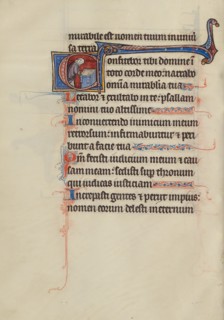 mirabile est nomen tuum in uniuer
sa terra
Confitebor tibi domine in
toto corde meo: narrabo
omnia mirabilia tua
Letabor et exultabo in te: psallam
nomini tuo altissime
In conuertendo inimicum meum
retrorsum: infirmabuntur et peri
bunt a facie tua
Qm fecisti iudicium meum et cau
sam meam: sedisti sup thronum
qui iudicas iusticiam
Increpasti gentes et periit impius:
nomen eorum delesti in eternum